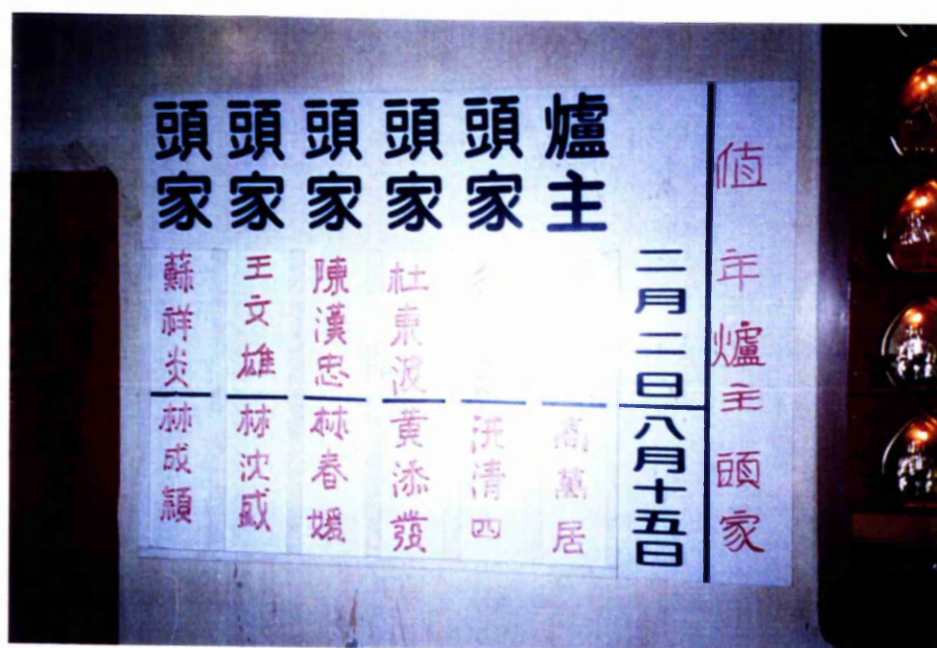 值年爐主頭家
二月二日 八月十五日
爐主 高萬居
頭家 洪清四
頭家 杜東波 黃添發
頭家 陳漢忠 林春媛
頭家 王文雄 林沈盛
頭家 蘇祥炎 林成穎